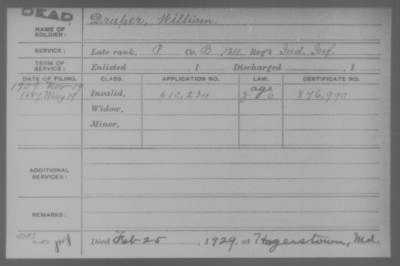 DEAD
NAME OF SOLDIER: Draper, William.
SERVICE: Late rank, P Co. B, 124 Reg't Ind. Inf.
TERM OF SERVICE: Enlisted , 1 Discharged , 1
DATE OF FILING. CLASS. APPLICATION NO. LAW. CERTIFICATE NO.
1907 Nov 19 age
1887 May 19 Invalid, 610,234 876,990
Widow,
Minor,
ADDITIONAL SERVICES:
REMARKS:
Died Feb 25 , 1929, at Hagerstown, Md.